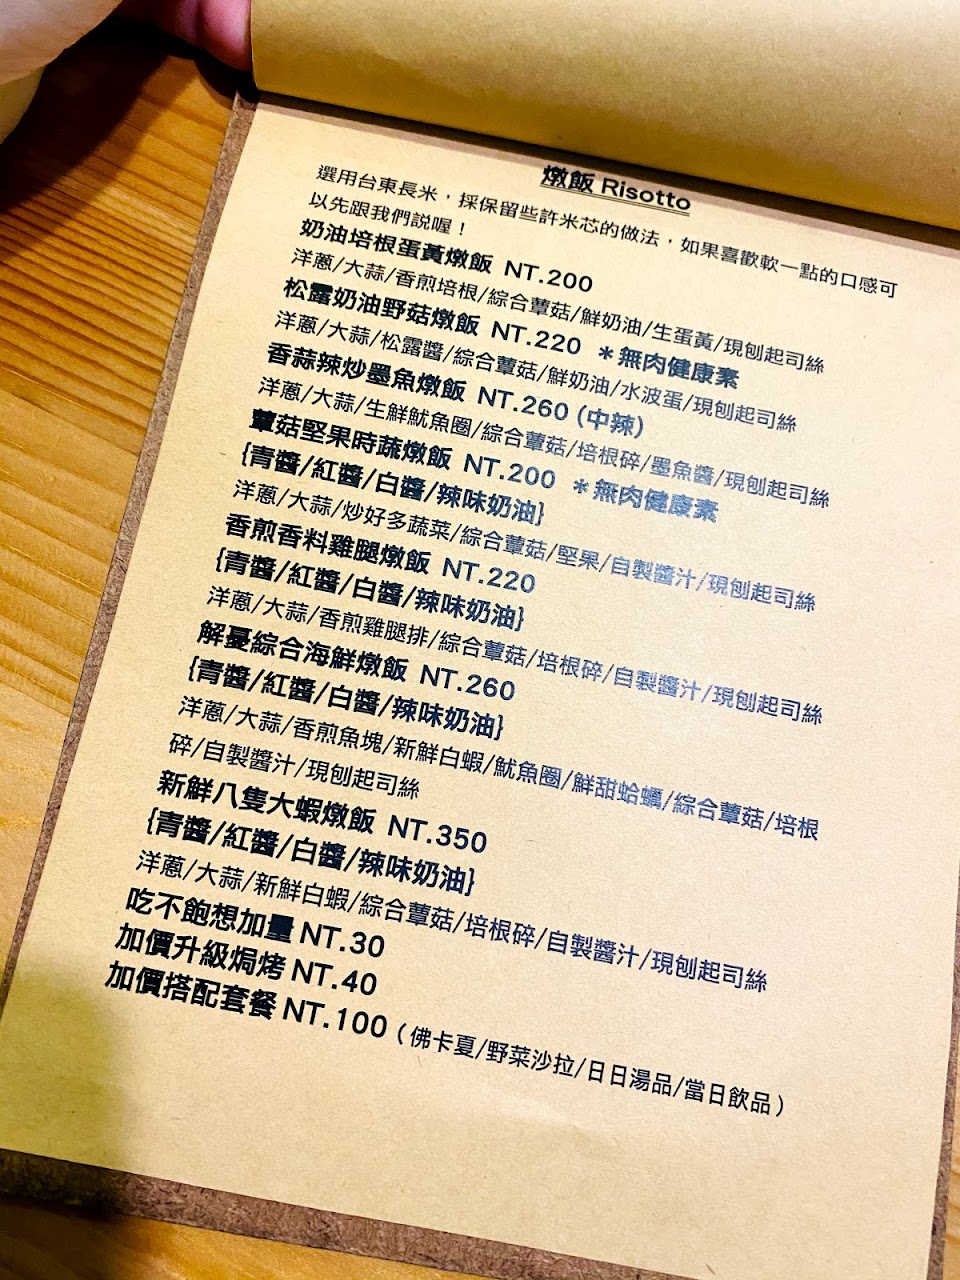 燉飯 Risotto
選用台東長米，採保留些許米芯的做法，如果喜歡軟一點的口感可
以先跟我們說喔！
奶油培根蛋黃燉飯 NT.200
洋蔥/大蒜/香煎培根/綜合蕈菇/鮮奶油/生蛋黃/現刨起司絲
松露奶油野菇燉飯 NT.220 ＊無肉健康素
洋蔥/大蒜/松露醬/綜合蕈菇/鮮奶油/水波蛋/現刨起司絲
香蒜辣炒墨魚燉飯 NT.260 (中辣)
洋蔥/大蒜/生鮮魷魚圈/綜合蕈菇/培根碎/墨魚醬/現刨起司絲
蕈菇堅果時蔬燉飯 NT.200 ＊無肉健康素
{青醬/紅醬/白醬/辣味奶油}
洋蔥/大蒜/炒好多蔬菜/綜合蕈菇/堅果/自製醬汁/現刨起司絲
香煎香料雞腿燉飯 NT.220
{青醬/紅醬/白醬/辣味奶油}
洋蔥/大蒜/香煎雞腿排/綜合蕈菇/培根碎/自製醬汁/現刨起司絲
解憂綜合海鮮燉飯 NT.260
{青醬/紅醬/白醬/辣味奶油}
洋蔥/大蒜/香煎魚塊/新鮮白蝦/魷魚圈/鮮甜蛤蠣/綜合蕈菇/培根
碎/自製醬汁/現刨起司絲
新鮮八隻大蝦燉飯 NT.350
{青醬/紅醬/白醬/辣味奶油}
洋蔥/大蒜/新鮮白蝦/綜合蕈菇/培根碎/自製醬汁/現刨起司絲
吃不飽想加量 NT.30
加價升級焗烤 NT.40
加價搭配套餐 NT.100（佛卡夏/野菜沙拉/日日湯品/當日飲品）